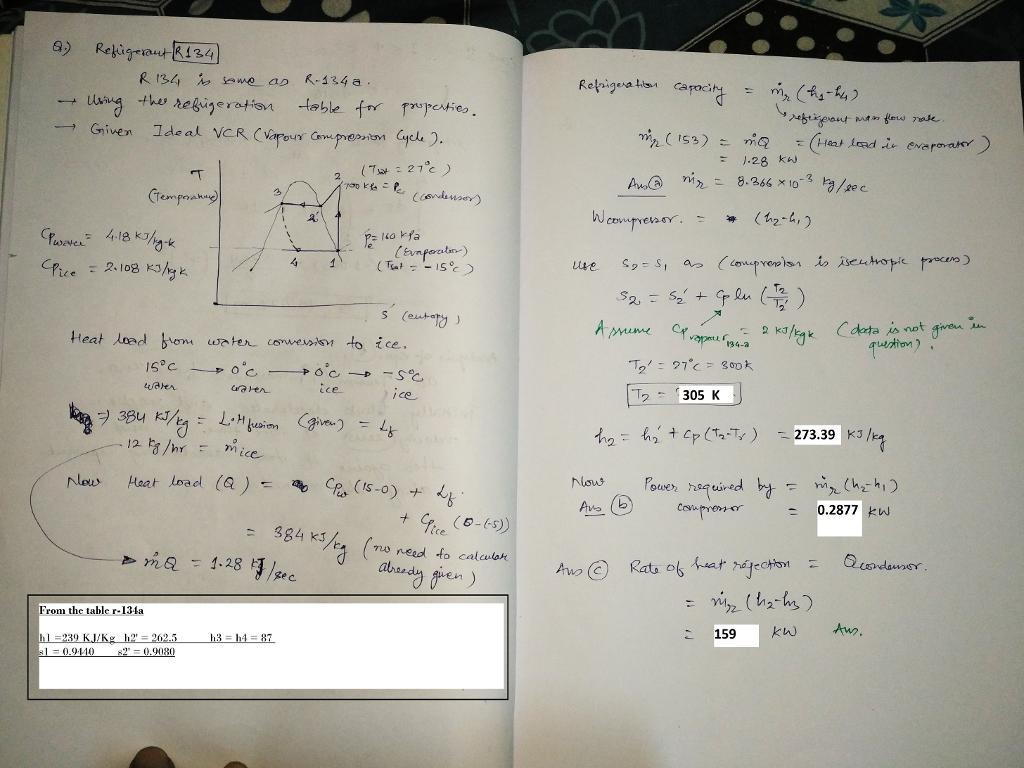 Q.) Refrigerant R134
R 134 is same as R-134a.
→ Using the refrigeration table for properties.
→ Given Ideal VCR (Vapour Compression Cycle).
T
(Temperature)
3
2
2'
(Tsat = 27°c)
700 kPa = Pc
(condensor)
Pe = 160 kPa
(Evaporator)
(Tsat = -15°c)
4
1
s (entropy)
Cpwater = 4.18 KJ/kg-k
Cpice = 2.108 KJ/kgk
Heat load from water conversion to ice.
15°C → 0°c → 0°c → -5°c
water water ice ice
⇒ 384 KJ/kg = L.Hfusion (given) = Lf
12 kg/hr = ṁice
Now Heat load (Q) = Cpw (15-0) + Lf
+ Cpice (0-(-5))
= 384 KJ/kg (no need to calculate already given)
ṁQ = 1.28 KJ/sec
From the table r-134a
h1 =239 KJ/Kg h2' = 262.5 h3 = h4 = 87
s1 = 0.9440 s2' = 0.9080
Refrigeration capacity = ṁr (h1-h4)
refrigerant mass flow rate.
ṁr (153) = ṁQ = (Heat load in evaporator)
= 1.28 kW
Ans (a) ṁr = 8.366 ×10-3 kg/sec
Wcompressor. = (h2-h1)
use s2 = s1 as (compression is isentropic process)
s2 = s2' + Cp ln (T2/T2')
Assume Cpvapour134-a = 2 KJ/kgk (data is not given in question).
T2' = 27°c = 300k
T2 = 305 K
h2 = h2' + Cp (T2-T2') = 273.39 KJ/kg
Now Power required by = ṁr (h2-h1)
Ans (b) compressor = 0.2877 KW
Ans (c) Rate of heat rejection = Qcondensor.
= ṁr (h2-h3)
= 159 KW Ans.